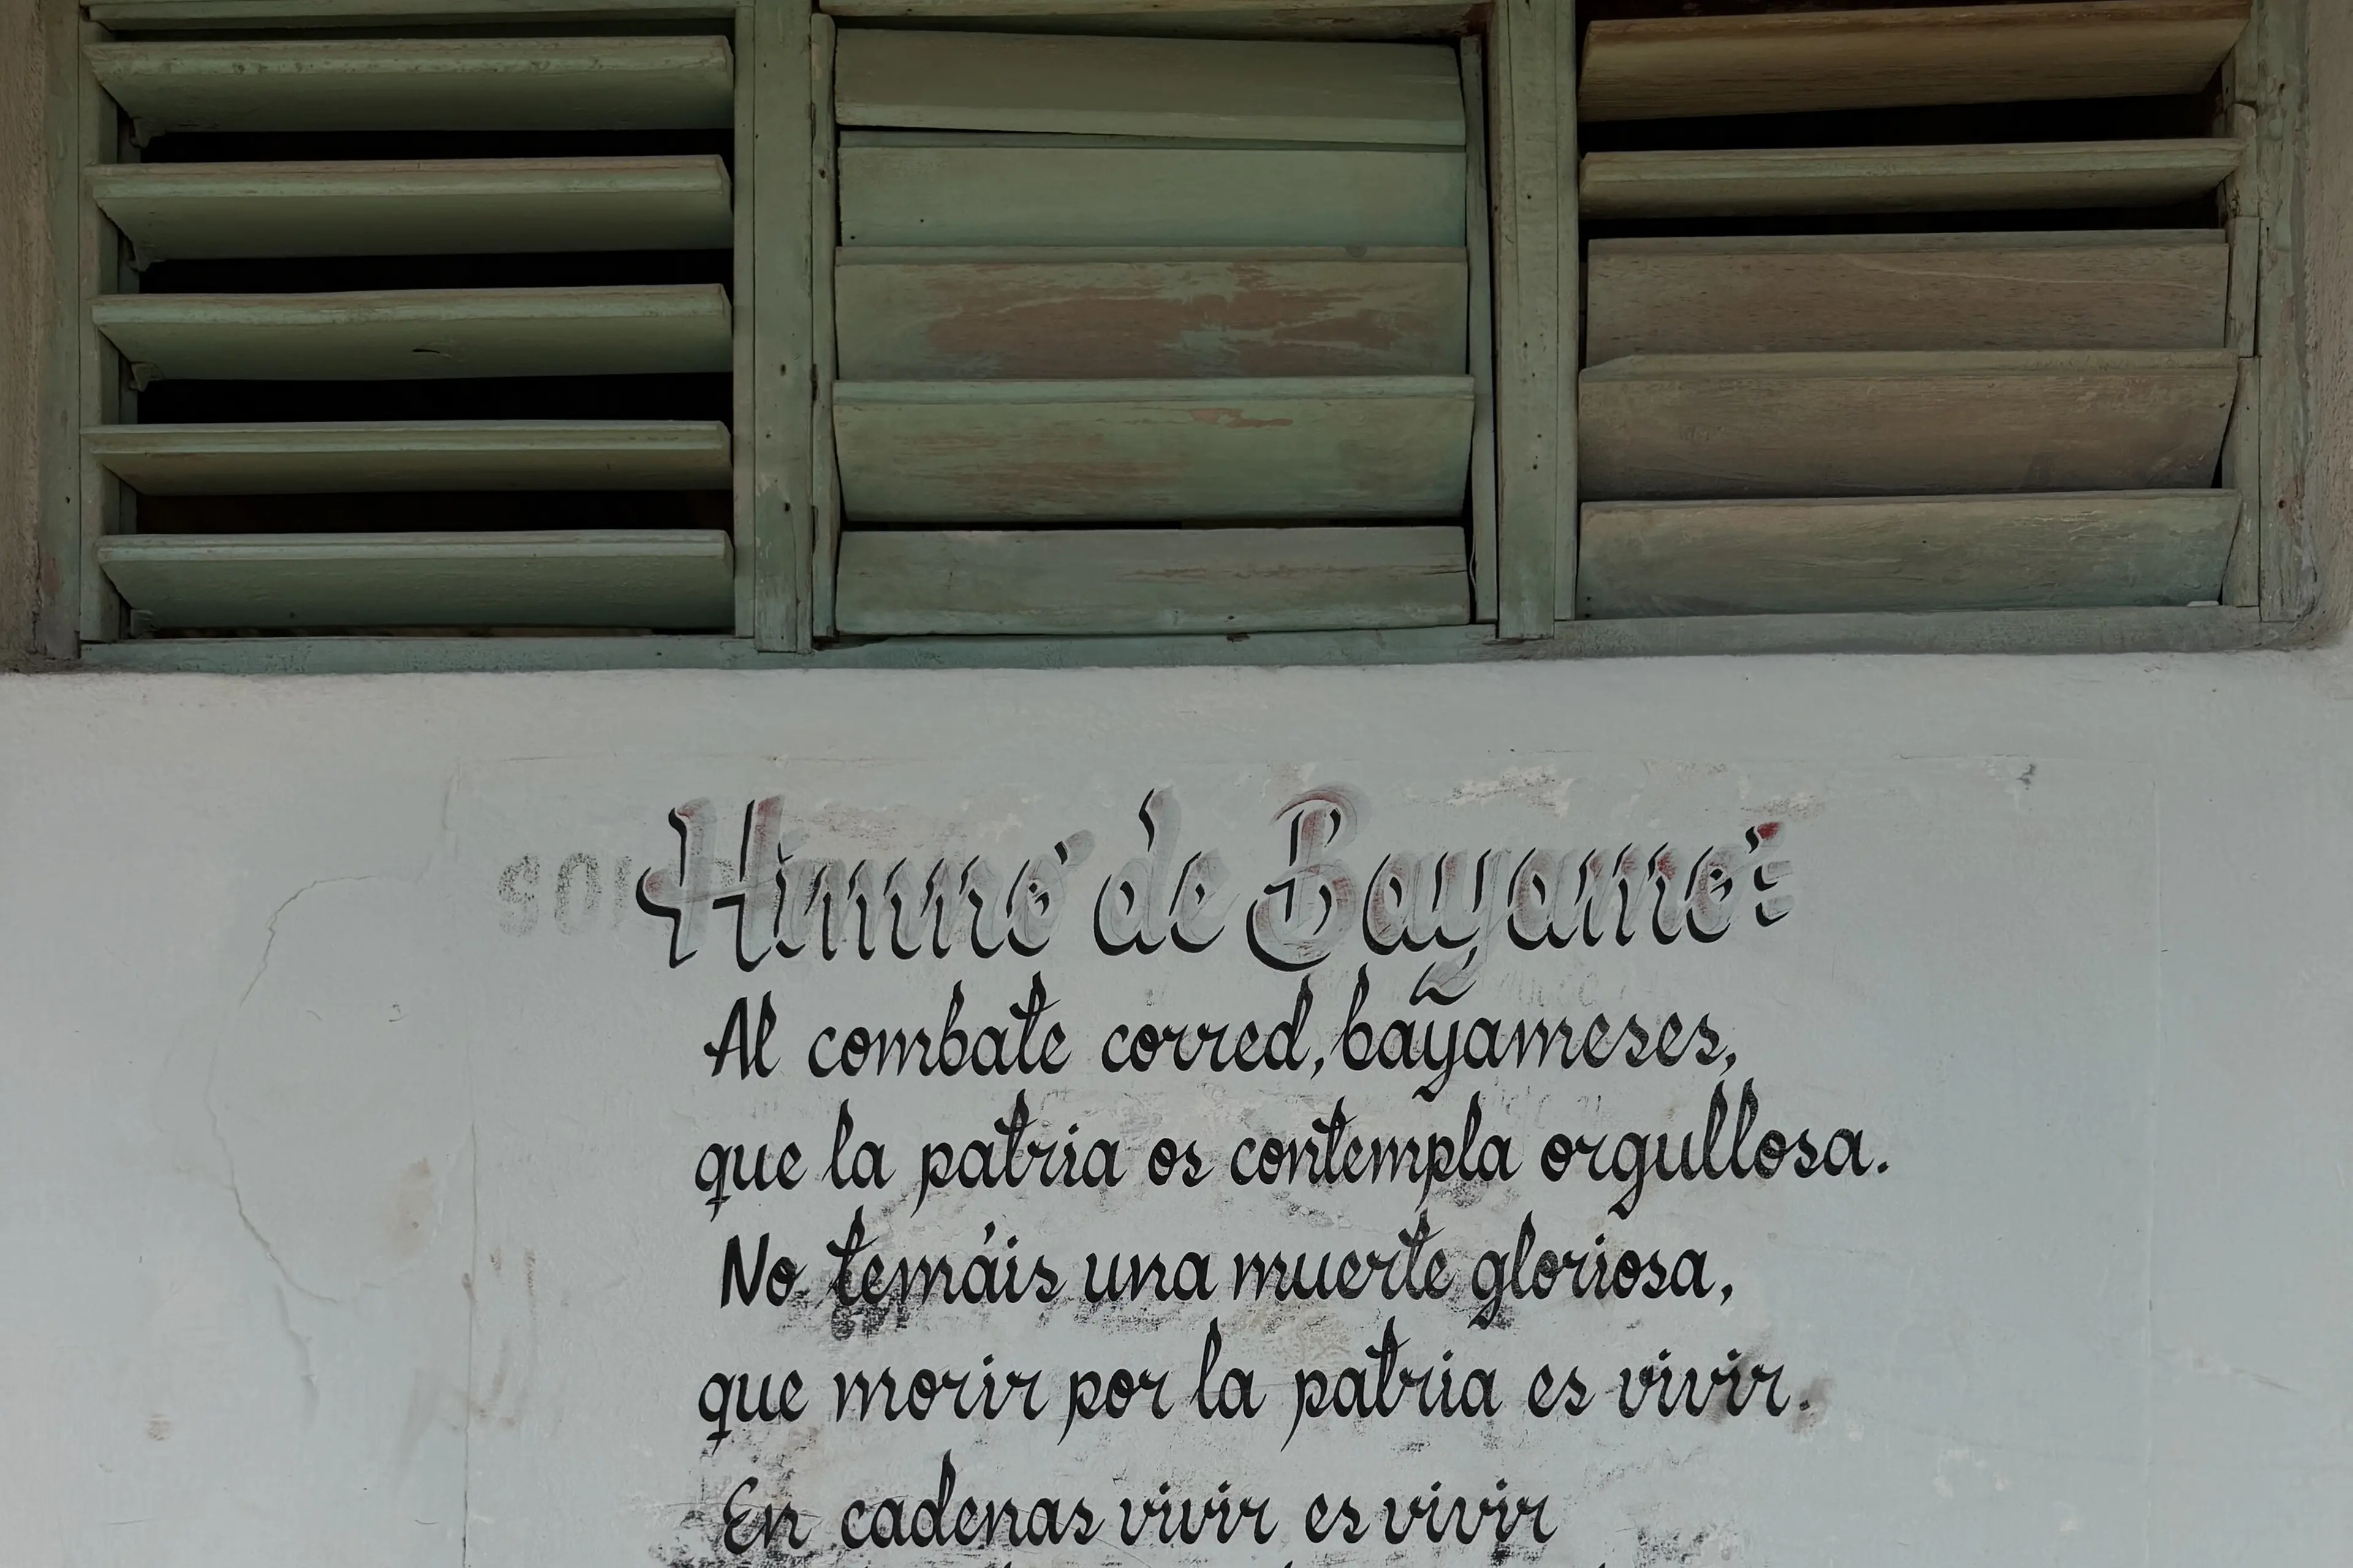 Himno de Bayamo:
Al combate corred, bayameses,
que la patria os contempla orgullosa.
No temáis una muerte gloriosa,
que morir por la patria es vivir.
En cadenas vivir es vivir